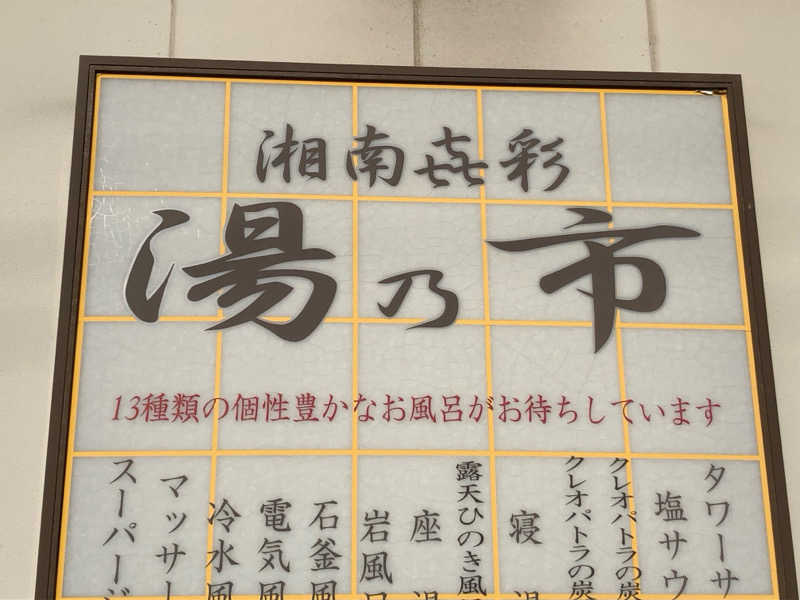 湘南㐂彩
湯乃市
13種類の個性豊かなお風呂がお待ちしています
タワーサ
塩サウ
クレオパトラの炭
クレオパトラの炭
寝湯
露天ひのき風
座湯
岩風
石釜風
電気風
冷水風
マッサー
スーパージ